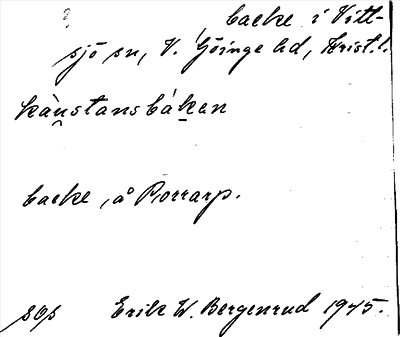 ? backe i Vitt-
sjö sn, V. Göinge hd, Krist. l.
kànstansbákan
backe, å Porrarp.
sos Erik W. Bergenrud 1945.